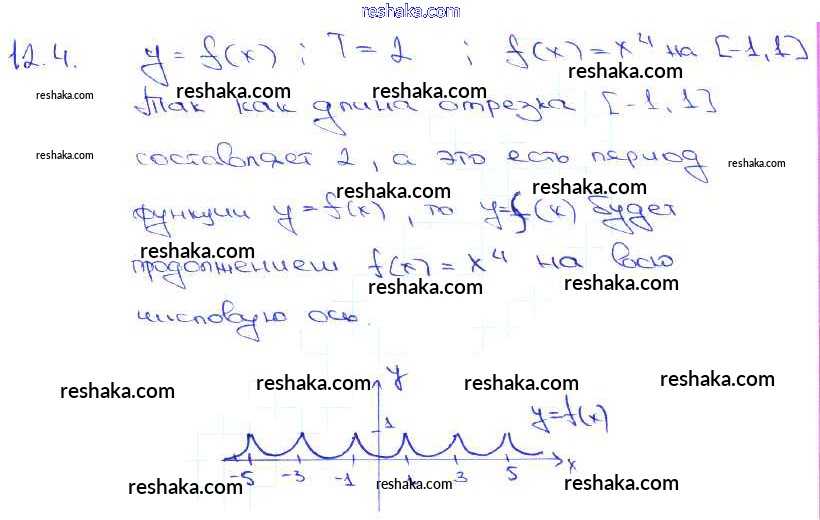 reshaka.com
12.4. y = f(x) ; T = 2 ; f(x) = x⁴ на [-1,1]
reshaka.com
reshaka.com reshaka.com reshaka.com
Так как длина отрезка [-1,1]
reshaka.com
составляет 2, а это есть период
reshaka.com
reshaka.com reshaka.com
функции y=f(x), то y=f(x) будет
reshaka.com
продолжением f(x) = x⁴ на всю
reshaka.com reshaka.com
числовую ось.
reshaka.com reshaka.com reshaka.com reshaka.com
y
1
y=f(x)
-5 -3 -1 1 3 5 x
reshaka.com reshaka.com reshaka.com